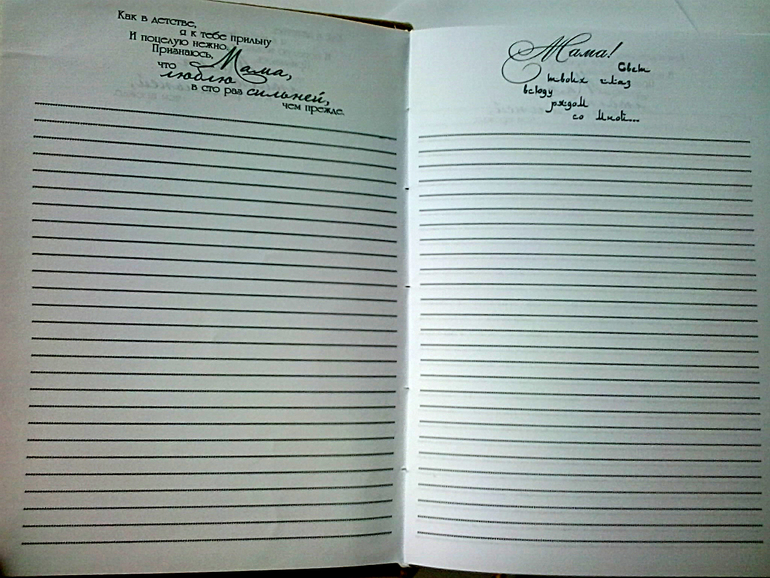 Как в детстве,
а к тебе прильну
И поцелую нежно,
Признаюсь, Мама,
что люблю
в сто раз сильней,
чем прежде.
Мама!
Свет
твоих глаз
всюду
рядом
со мной...